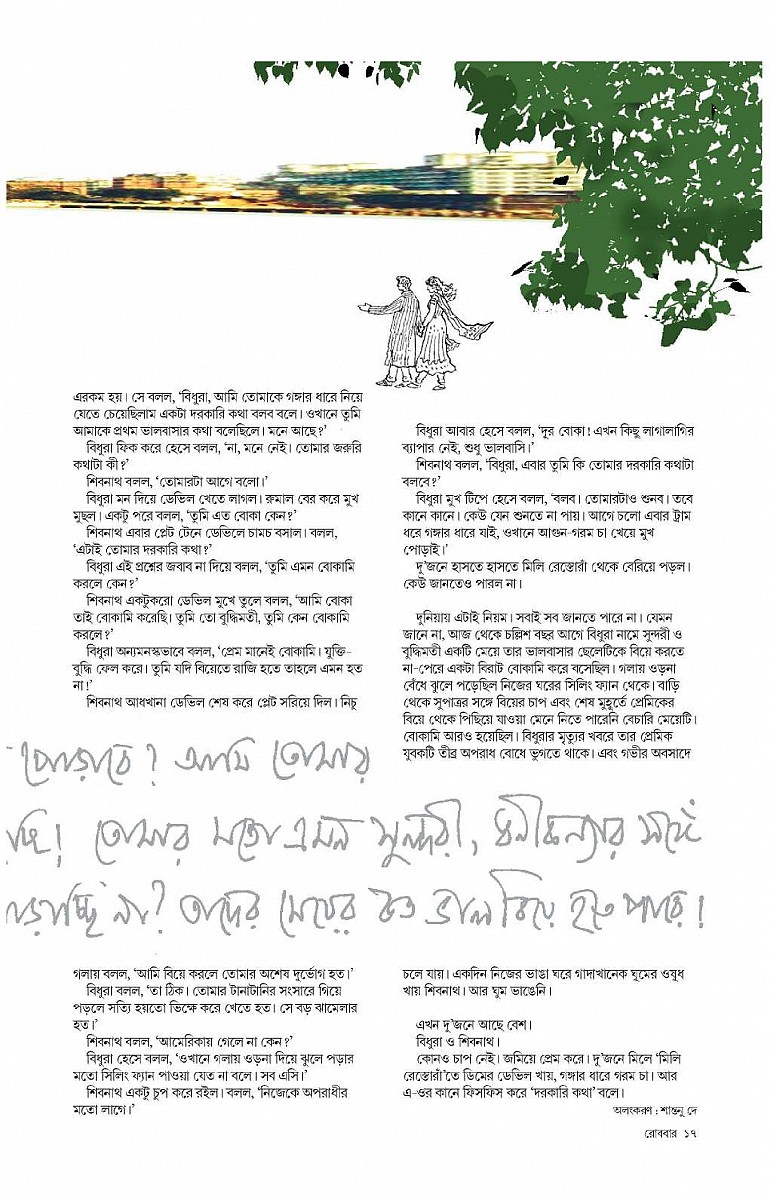 এরকম হয়। সে বলল, ‘বিধুরা, আমি তোমাকে গঙ্গার ধারে নিয়ে
যেতে চেয়েছিলাম একটা দরকারি কথা বলব বলে। ওখানে তুমি
আমাকে প্রথম ভালবাসার কথা বলেছিলে। মনে আছে?’
বিধুরা ফিক করে হেসে বলল, ‘না, মনে নেই। তোমার জরুরি
কথাটা কী?’
শিবনাথ বলল, ‘তোমারটা আগে বলো।’
বিধুরা মন দিয়ে ডেভিল খেতে লাগল। রুমাল বের করে মুখ
মুছল। একটু পরে বলল, ‘তুমি এত বোকা কেন?’
শিবনাথ এবার প্লেট টেনে ডেভিলে চামচ বসাল। বলল,
‘এটাই তোমার দরকারি কথা?’
বিধুরা এই প্রশ্নের জবাব না দিয়ে বলল, ‘তুমি এমন বোকামি
করলে কেন?’
শিবনাথ একটুকরো ডেভিল মুখে তুলে বলল, ‘আমি বোকা
তাই বোকামি করেছি। তুমি তো বুদ্ধিমতী, তুমি কেন বোকামি
করলে?’
বিধুরা অন্যমনস্কভাবে বলল, ‘প্রেম মানেই বোকামি। যুক্তি-
বুদ্ধি ফেল করে। তুমি যদি বিয়েতে রাজি হতে তাহলে এমন হত
না!’
শিবনাথ আধখানা ডেভিল শেষ করে প্লেট সরিয়ে দিল। নিচু
গলায় বলল, ‘আমি বিয়ে করলে তোমার অশেষ দুর্ভোগ হত।’
বিধুরা বলল, ‘তা ঠিক। তোমার টানাটানির সংসারে গিয়ে
পড়লে সত্যি হয়তো ভিক্ষে করে খেতে হত। সে বড় ঝামেলার
হত।’
শিবনাথ বলল, ‘আমেরিকায় গেলে না কেন?’
বিধুরা হেসে বলল, ‘ওখানে গলায় ওড়না দিয়ে ঝুলে পড়ার
মতো সিলিং ফ্যান পাওয়া যেত না বলে। সব এসি।’
শিবনাথ একটু চুপ করে রইল। বলল, ‘নিজেকে অপরাধীর
মতো লাগে।’
বিধুরা আবার হেসে বলল, ‘দূর বোকা! এখন কিছু লাগালাগির
ব্যাপার নেই, শুধু ভালবাসি।’
শিবনাথ বলল, ‘বিধুরা, এবার তুমি কি তোমার দরকারি কথাটা
বলবে?’
বিধুরা মুখ টিপে হেসে বলল, ‘বলব। তোমারটাও শুনব। তবে
কানে কানে। কেউ যেন শুনতে না পায়। আগে চলো এবার ট্রাম
ধরে গঙ্গার ধারে যাই, ওখানে আগুন-গরম চা খেয়ে মুখ
পোড়াই।’
দু’জনে হাসতে হাসতে মিলি রেস্তোরাঁ থেকে বেরিয়ে পড়ল।
কেউ জানতেও পারল না।
দুনিয়ায় এটাই নিয়ম। সবাই সব জানতে পারে না। যেমন
জানে না, আজ থেকে চল্লিশ বছর আগে বিধুরা নামে সুন্দরী ও
বুদ্ধিমতী একটি মেয়ে তার ভালবাসার ছেলেটিকে বিয়ে করতে
না-পেরে একটা বিরাট বোকামি করে বসেছিল। গলায় ওড়না
বেঁধে ঝুলে পড়েছিল নিজের ঘরের সিলিং ফ্যান থেকে। বাড়ি
থেকে সুপাত্রর সঙ্গে বিয়ের চাপ এবং শেষ মুহূর্তে প্রেমিকের
বিয়ে থেকে পিছিয়ে যাওয়া মেনে নিতে পারেনি বেচারি মেয়েটি।
বোকামি আরও হয়েছিল। বিধুরার মৃত্যুর খবরে তার প্রেমিক
যুবকটি তীব্র অপরাধ বোধে ভুগতে থাকে। এবং গভীর অবসাদে
চলে যায়। একদিন নিজের ভাঙা ঘরে গাদাখানেক ঘুমের ওষুধ
খায় শিবনাথ। আর ঘুম ভাঙেনি।
এখন দু’জনে আছে বেশ।
বিধুরা ও শিবনাথ।
কোনও চাপ নেই। জমিয়ে প্রেম করে। দু’জনে মিলে ‘মিলি
রেস্তোরাঁ’তে ডিমের ডেভিল খায়, গঙ্গার ধারে গরম চা। আর
এ-ওর কানে ফিসফিস করে ‘দরকারি কথা’ বলে।
অলংকরণ : শান্তনু দে
? আমি তোমার
! তোমার মতো এমন সুন্দরী, ধনীকন্যার সঙ্গে
না? তাদের মেয়ের কত ভাল বিয়ে হতে পারে!
রোববার ১৭